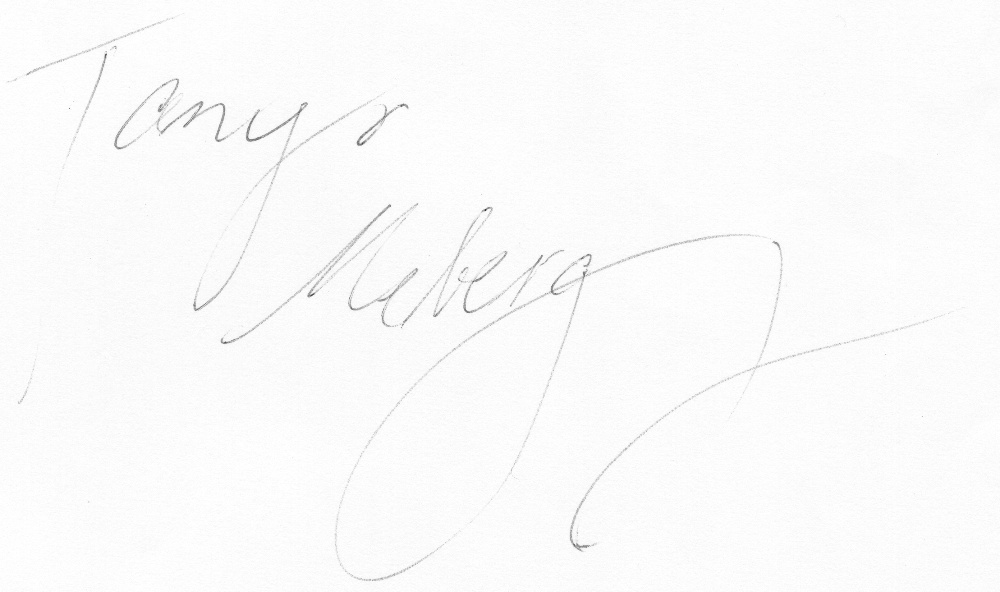 Tanya
Meberg